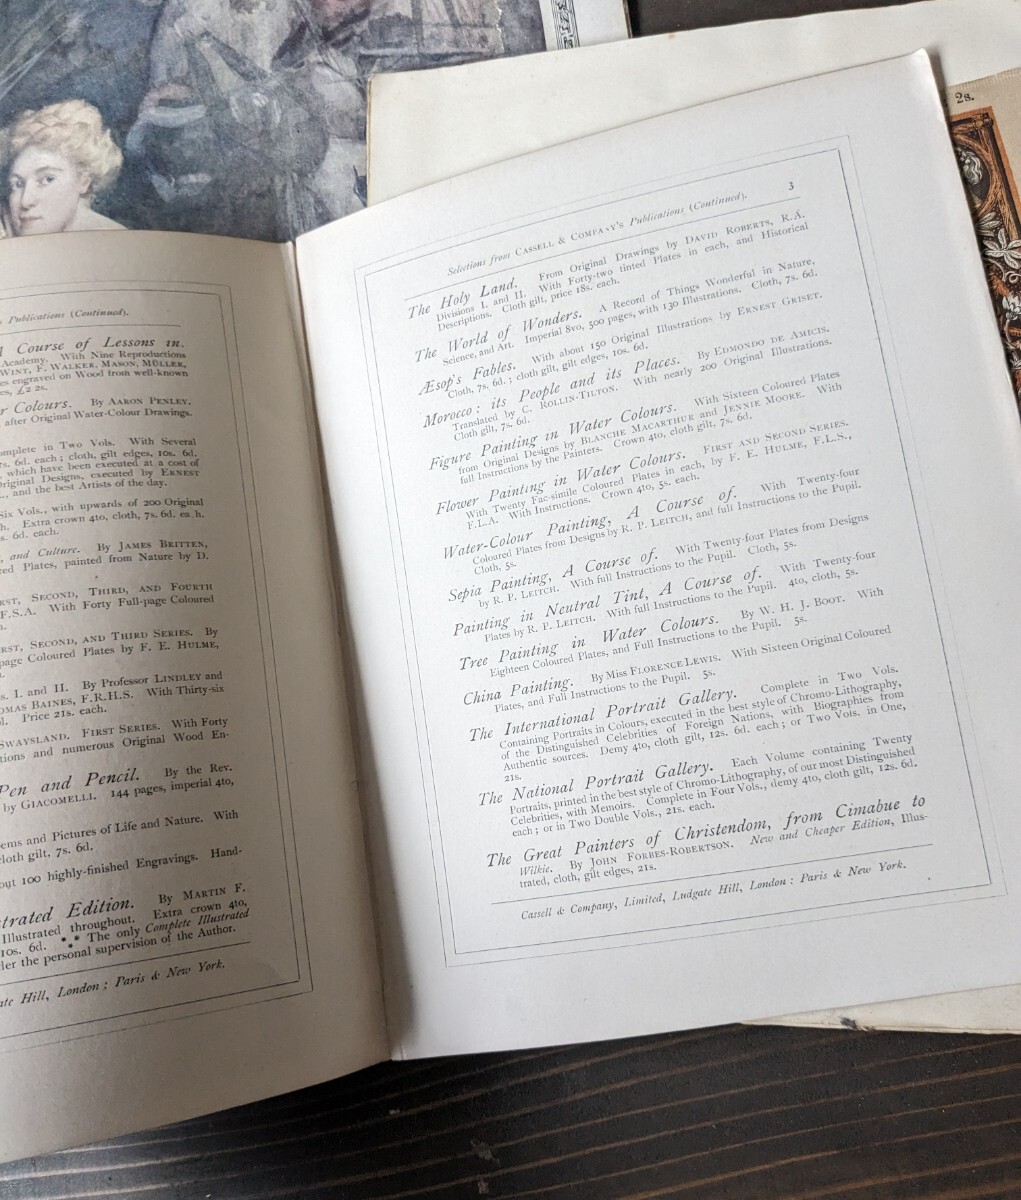 s Publications (Continued).
A Course of Lessons in.
Academy. With Nine Reproductions
WINT, F. WALKER, MASON, MÜLLER,
es engraved on Wood from well-known
es, £2 2s.
r Colours. By AARON PENLEY.
after Original Water-Colour Drawings.
omplete in Two Vols. With Several
7s. 6d. each; cloth, gilt edges, 10s. 6d.
which have been executed at a cost of
Original Designs, executed by ERNEST
., and the best Artists of the day.
Six Vols., with upwards of 200 Original
h. Extra crown 4to, cloth, 7s. 6d. ea h.
s. 6d. each.
and Culture. By JAMES BRITTEN,
red Plates, painted from Nature by D.
RST, SECOND, THIRD, AND FOURTH
F.S.A. With Forty Full-page Coloured
RST, SECOND, AND THIRD SERIES. By
page Coloured Plates by F. E. HULME,
s. I. and II. By Professor LINDLEY and
OMAS BAINES, F.R.H.S. With Thirty-six
Price 21s. each.
SWAYSLAND. FIRST SERIES. With Forty
tions and numerous Original Wood En-
Pen and Pencil. By the Rev.
by GIACOMELLI. 144 pages, imperial 4to,
ems and Pictures of Life and Nature. With
cloth gilt, 7s. 6d.
out 100 highly-finished Engravings. Hand-
trated Edition. By MARTIN F.
Illustrated throughout. Extra crown 4to,
10s. 6d. *** The only Complete Illustrated
der the personal supervision of the Author.
ate Hill, London; Paris & New York.
3
Selections from CASSELL & COMPANY'S Publications (Continued).
The Holy Land. From Original Drawings by DAVID ROBERTS, R.A.
Divisions I. and II. With Forty-two tinted Plates in each, and Historical
Descriptions. Cloth gilt, price 18s. each.
The World of Wonders. A Record of Things Wonderful in Nature,
Science, and Art. Imperial 8vo, 500 pages, with 130 Illustrations. Cloth, 7s. 6d.
Æsop's Fables. With about 150 Original Illustrations by ERNEST GRISET.
Cloth, 7s. 6d.; cloth gilt, gilt edges, 10s. 6d.
Morocco: its People and its Places. By EDMONDO DE AMICIS.
Translated by C. ROLLIN-TILTON. With nearly 200 Original Illustrations.
Cloth gilt, 7s. 6d.
Figure Painting in Water Colours. With Sixteen Coloured Plates
from Original Designs by BLANCHE MACARTHUR and JENNIE MOORE. With
full Instructions by the Painters. Crown 4to, cloth gilt, 7s. 6d.
Flower Painting in Water Colours. FIRST AND SECOND SERIES.
With Twenty Fac-simile Coloured Plates in each, by F. E. HULME, F.L.S.,
F.L.A. With Instructions. Crown 4to, 5s. each.
Water-Colour Painting, A Course of. With Twenty-four
Coloured Plates from Designs by R. P. LEITCH, and full Instructions to the Pupil.
Cloth, 5s.
Sepia Painting, A Course of. With Twenty-four Plates from Designs
by R. P. LEITCH. With full Instructions to the Pupil. Cloth, 5s.
Painting in Neutral Tint, A Course of. With Twenty-four
Plates by R. P. LEITCH. With full Instructions to the Pupil. 4to, cloth, 5s.
Tree Painting in Water Colours. By W. H. J. BOOT. With
Eighteen Coloured Plates, and Full Instructions to the Pupil. 5s.
China Painting. By Miss FLORENCE LEWIS. With Sixteen Original Coloured
Plates, and Full Instructions to the Pupil. 5s.
The International Portrait Gallery. Complete in Two Vols.
Containing Portraits in Colours, executed in the best style of Chromo-Lithography,
of the Distinguished Celebrities of Foreign Nations, with Biographies from
Authentic sources. Demy 4to, cloth gilt, 12s. 6d. each; or Two Vols. in One,
21s.
The National Portrait Gallery. Each Volume containing Twenty
Portraits, printed in the best style of Chromo-Lithography, of our most Distinguished
Celebrities, with Memoirs. Complete in Four Vols., demy 4to, cloth gilt, 12s. 6d.
each; or in Two Double Vols., 21s. each.
The Great Painters of Christendom, from Cimabue to
Wilkie. By JOHN FORBES-ROBERTSON. New and Cheaper Edition, Illus-
trated, cloth, gilt edges, 21s.
Cassell & Company, Limited, Ludgate Hill, London; Paris & New York.
2s.